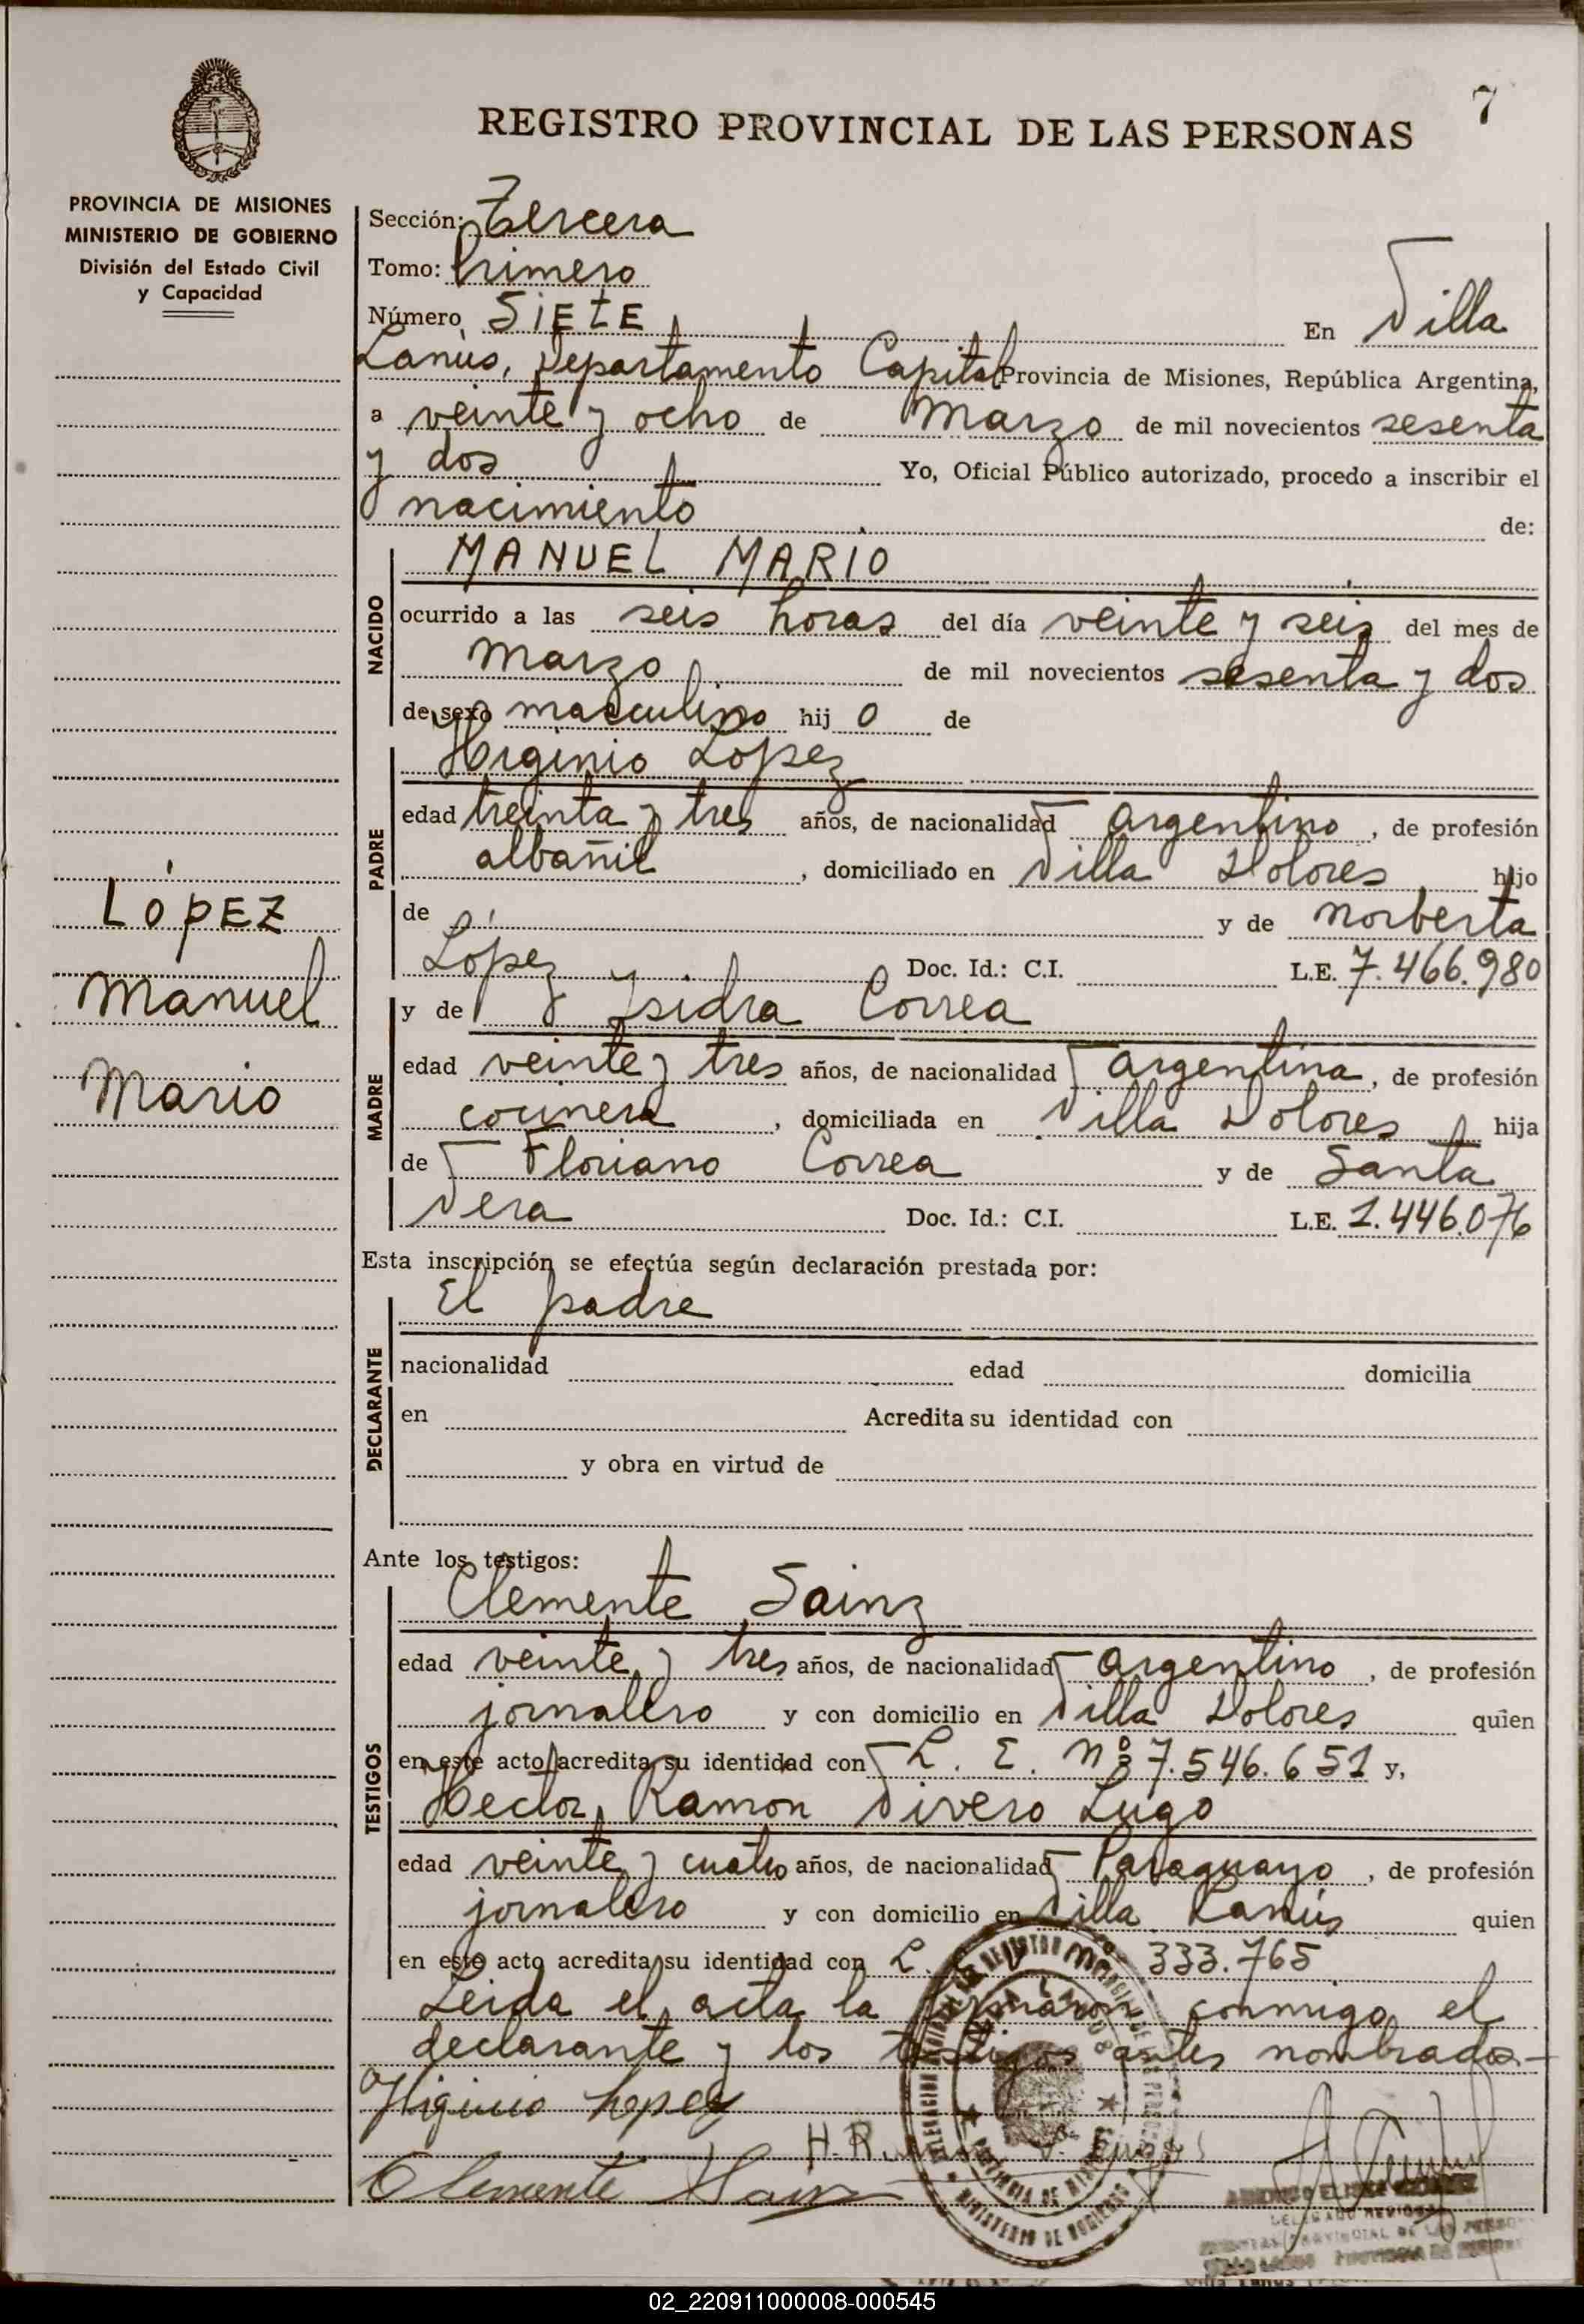 7
REGISTRO PROVINCIAL DE LAS PERSONAS
PROVINCIA DE MISIONES
MINISTERIO DE GOBIERNO
División del Estado Civil
y Capacidad
Sección: Tercera
Tomo: Primero
Número SiEtE En Villa
Lanús, Departamento Capital Provincia de Misiones, República Argentina,
a veinte y ocho de Marzo de mil novecientos sesenta
y dos Yo, Oficial Público autorizado, procedo a inscribir el
nacimiento de:
NACIDO
MANUEL MARIO
ocurrido a las seis horas del día veinte y seis del mes de
Marzo de mil novecientos sesenta y dos
de sexo masculino hij o de
PADRE
Higinio López
edad treinta y tres años, de nacionalidad argentino, de profesión
albañil, domiciliado en Villa Dolores hijo
de y de Norberta
López Doc. Id.: C.I. L.E. 7.466.980
LÓPEZ
Manuel
Mario
MADRE
y de Ysidra Correa
edad veinte y tres años, de nacionalidad argentina, de profesión
cocinera, domiciliada en Villa Dolores hija
de Floriano Correa y de Santa
Vera Doc. Id.: C.I. L.E. 1.446.076
Esta inscripción se efectúa según declaración prestada por:
DECLARANTE
El padre
nacionalidad edad domicilia
en Acredita su identidad con
y obra en virtud de
Ante los testigos:
TESTIGOS
Clemente Sainz
edad veinte y tres años, de nacionalidad argentino, de profesión
jornalero y con domicilio en Villa Dolores quien
en este acto acredita su identidad con L. E. Nº 7.546.651 y,
Hector Ramon Rivero Lugo
edad veinte y cuatro años, de nacionalidad Paraguayo, de profesión
jornalero y con domicilio en Villa Lanús quien
en este acto acredita su identidad con 333.765
Leida el acta la firmaron conmigo el
declarante y los testigos antes nombrados
Higinio Lopez
H.R.
Clemente Sainz
MINISTERIO DE GOBIERNO
PROVINCIA DE MISIONES
02_220911000008-000545